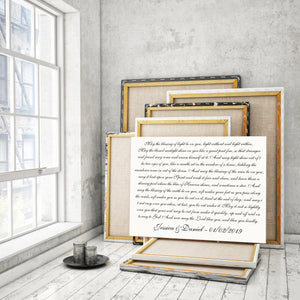 May the blessing of light be on you, light without and light within.
May the blessed sunlight shine on you like a great peat fire, so that stranger
and friend may come and warm himself at it. And may light shine out of
the two eyes of you, like a candle set in the window of a house, bidding the
wanderer come in out of the storm. And may the blessing of the rain be on you,
may it beat upon your Spirit and wash it fair and clean, and leave there a
shining pool where the blue of Heaven shines, and sometimes a star. And
may the blessing of the earth be on you, soft under your feet as you pass along
the roads, soft under you as you lie out on it, tired at the end of day; and may
it rest easy over you when, at last, you lie out under it. May it rest so lightly
over you that your soul may be out from under it quickly; up and off and on
its way to God. And now may the Lord bless you, and bless you kindly.
Jessica & Daniel - 04/02/2019